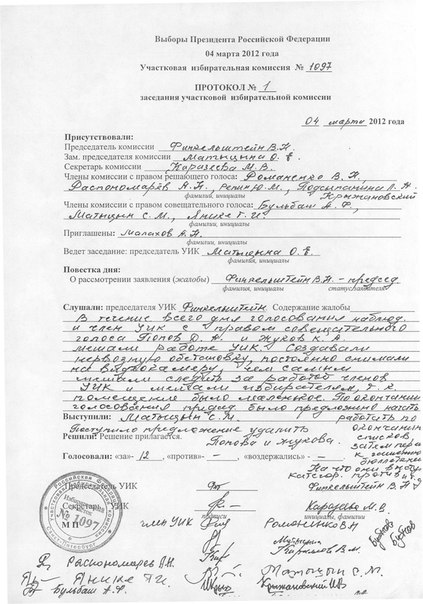 Выборы Президента Российской Федерации
04 марта 2012 года
Участковая избирательная комиссия № 1097
ПРОТОКОЛ № 1
заседания участковой избирательной комиссии
04 марта 2012 года
Присутствовали:
Председатель комиссии Финкельштейн В.Н.
Зам. председателя комиссии Матыцына О. Е.
Секретарь комиссии М.В.
Члены комиссии с правом решающего голоса: В.Н.
А.Н., Репин Ю.М., Л.Н.
фамилия, инициалы Крыжановский
Члены комиссии с правом совещательного голоса: Бульбаш А.Ф.,
Матыцын С.М., Янике Т.И.
фамилия, инициалы
Приглашены: Малахов А.Н.
фамилии, инициалы
Ведет заседание: председатель УИК О.Е
фамилия, инициалы
Повестка дня:
О рассмотрении заявления (жалобы) Финкельштейн В.Н. - председ
фамилия, инициалы статус заявителя
Слушали: председателя УИК Финкельштейн. Содержание жалобы
В течение всего дня голосования наблюд.
и член УИК с правом совещательного
голоса Попов Д.А. и Жуков К.А.
мешали работе УИК. Создавали
нервозную обстановку, постоянно снимали
на видеокамеру, чем самым
мешали следить за работой членов
УИК и мешали избирателям, т.к.
помещение было маленькое. По окончании
голосования председ. было предложено начать
Выступили: Матыцын С.М. работать по
Поступило предложение удалить окончании
Решили: Решение прилагается. Попова и Жукова. списков,
затем перейти
Голосовали: «за»- 12, «против»- –, «воздержались»- –. к
бюллетеней
На что они
против
Председатель УИК Финкельштейн В.Н
Секретарь УИК М.В.
фамилия, инициалы
МП № 1097 члены УИК Романенко В.Н
Распономарев А.Н.
Янике Т.И. Матыцын С.М.
Бульбаш А.Ф. Крыжановский И.В.